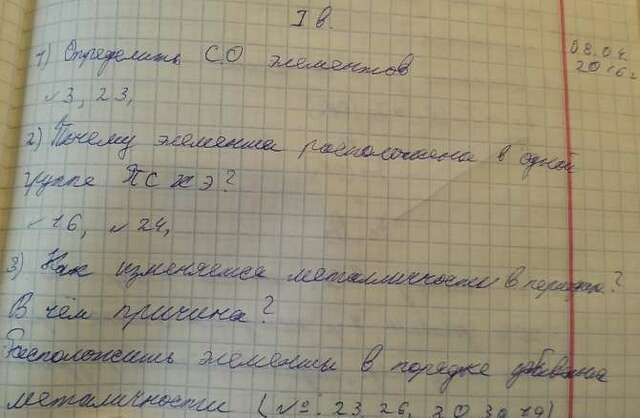 I в.
08.04
2016г
1) Определить С.О элементов
№3, 23,
2) Почему элементы расположены в одной
группе ПСХЭ?
№16, №24,
3) Как изменяется металличность в периоде?
В чём причина?
Расположить элементы в порядке убывания
металичности (№: 23, 26, 20, 30, 19)